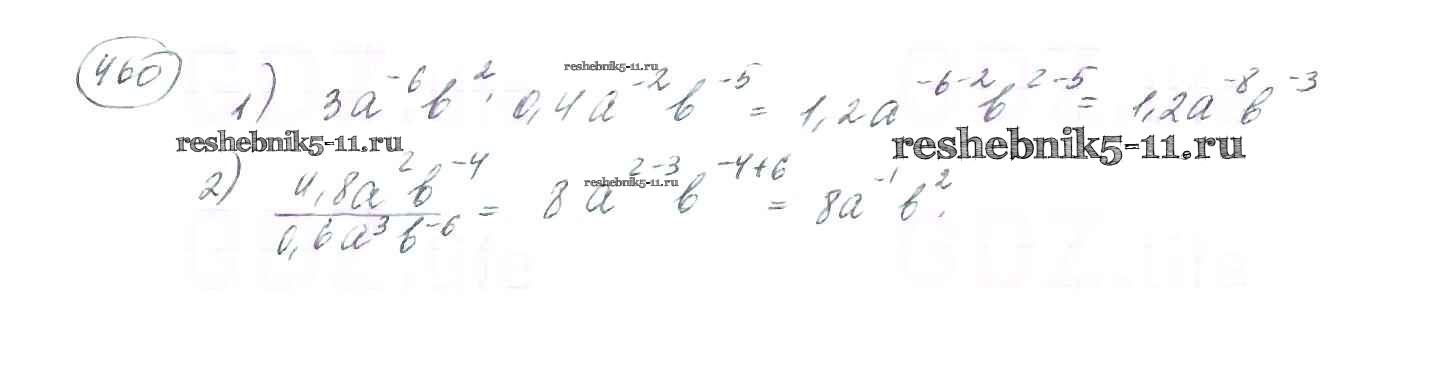 460
reshebnik5-11.ru
1) 3a⁻⁶b² · 0,4a⁻²b⁻⁵ = 1,2a⁻⁶⁻²b²⁻⁵ = 1,2a⁻⁸b⁻³
reshebnik5-11.ru reshebnik5-11.ru
2) 4,8a²b⁻⁴ / 0,6a³b⁻⁶ = 8a²⁻³b⁻⁴⁺⁶ = 8a⁻¹b².
reshebnik5-11.ru
GDZ.life GDZ.life